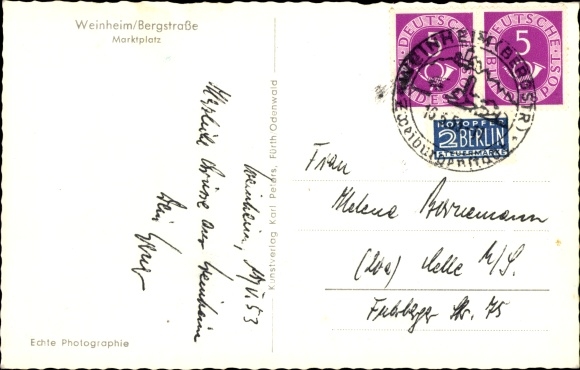 Weinheim/Bergstraße
Marktplatz
Weinheim, 14/V.53
Herzliche Grüsse aus Weinheim
Dein
Echte Photographie
Kunstverlag Karl Peters, Fürth Odenwald
DEUTSCHE BUNDESPOST
5
DEUTSCHE BUNDESPOST
5
WEINHEIM (BERGSTR)
NOTOPFER
2 BERLIN
STEUERMARKE
Frau
Helena Bornemann
(20a) Celle
Str. 75